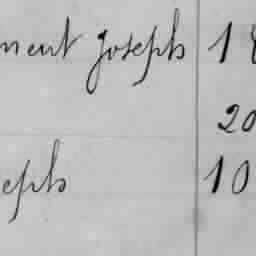 ment Joseph 18
20
eph 10